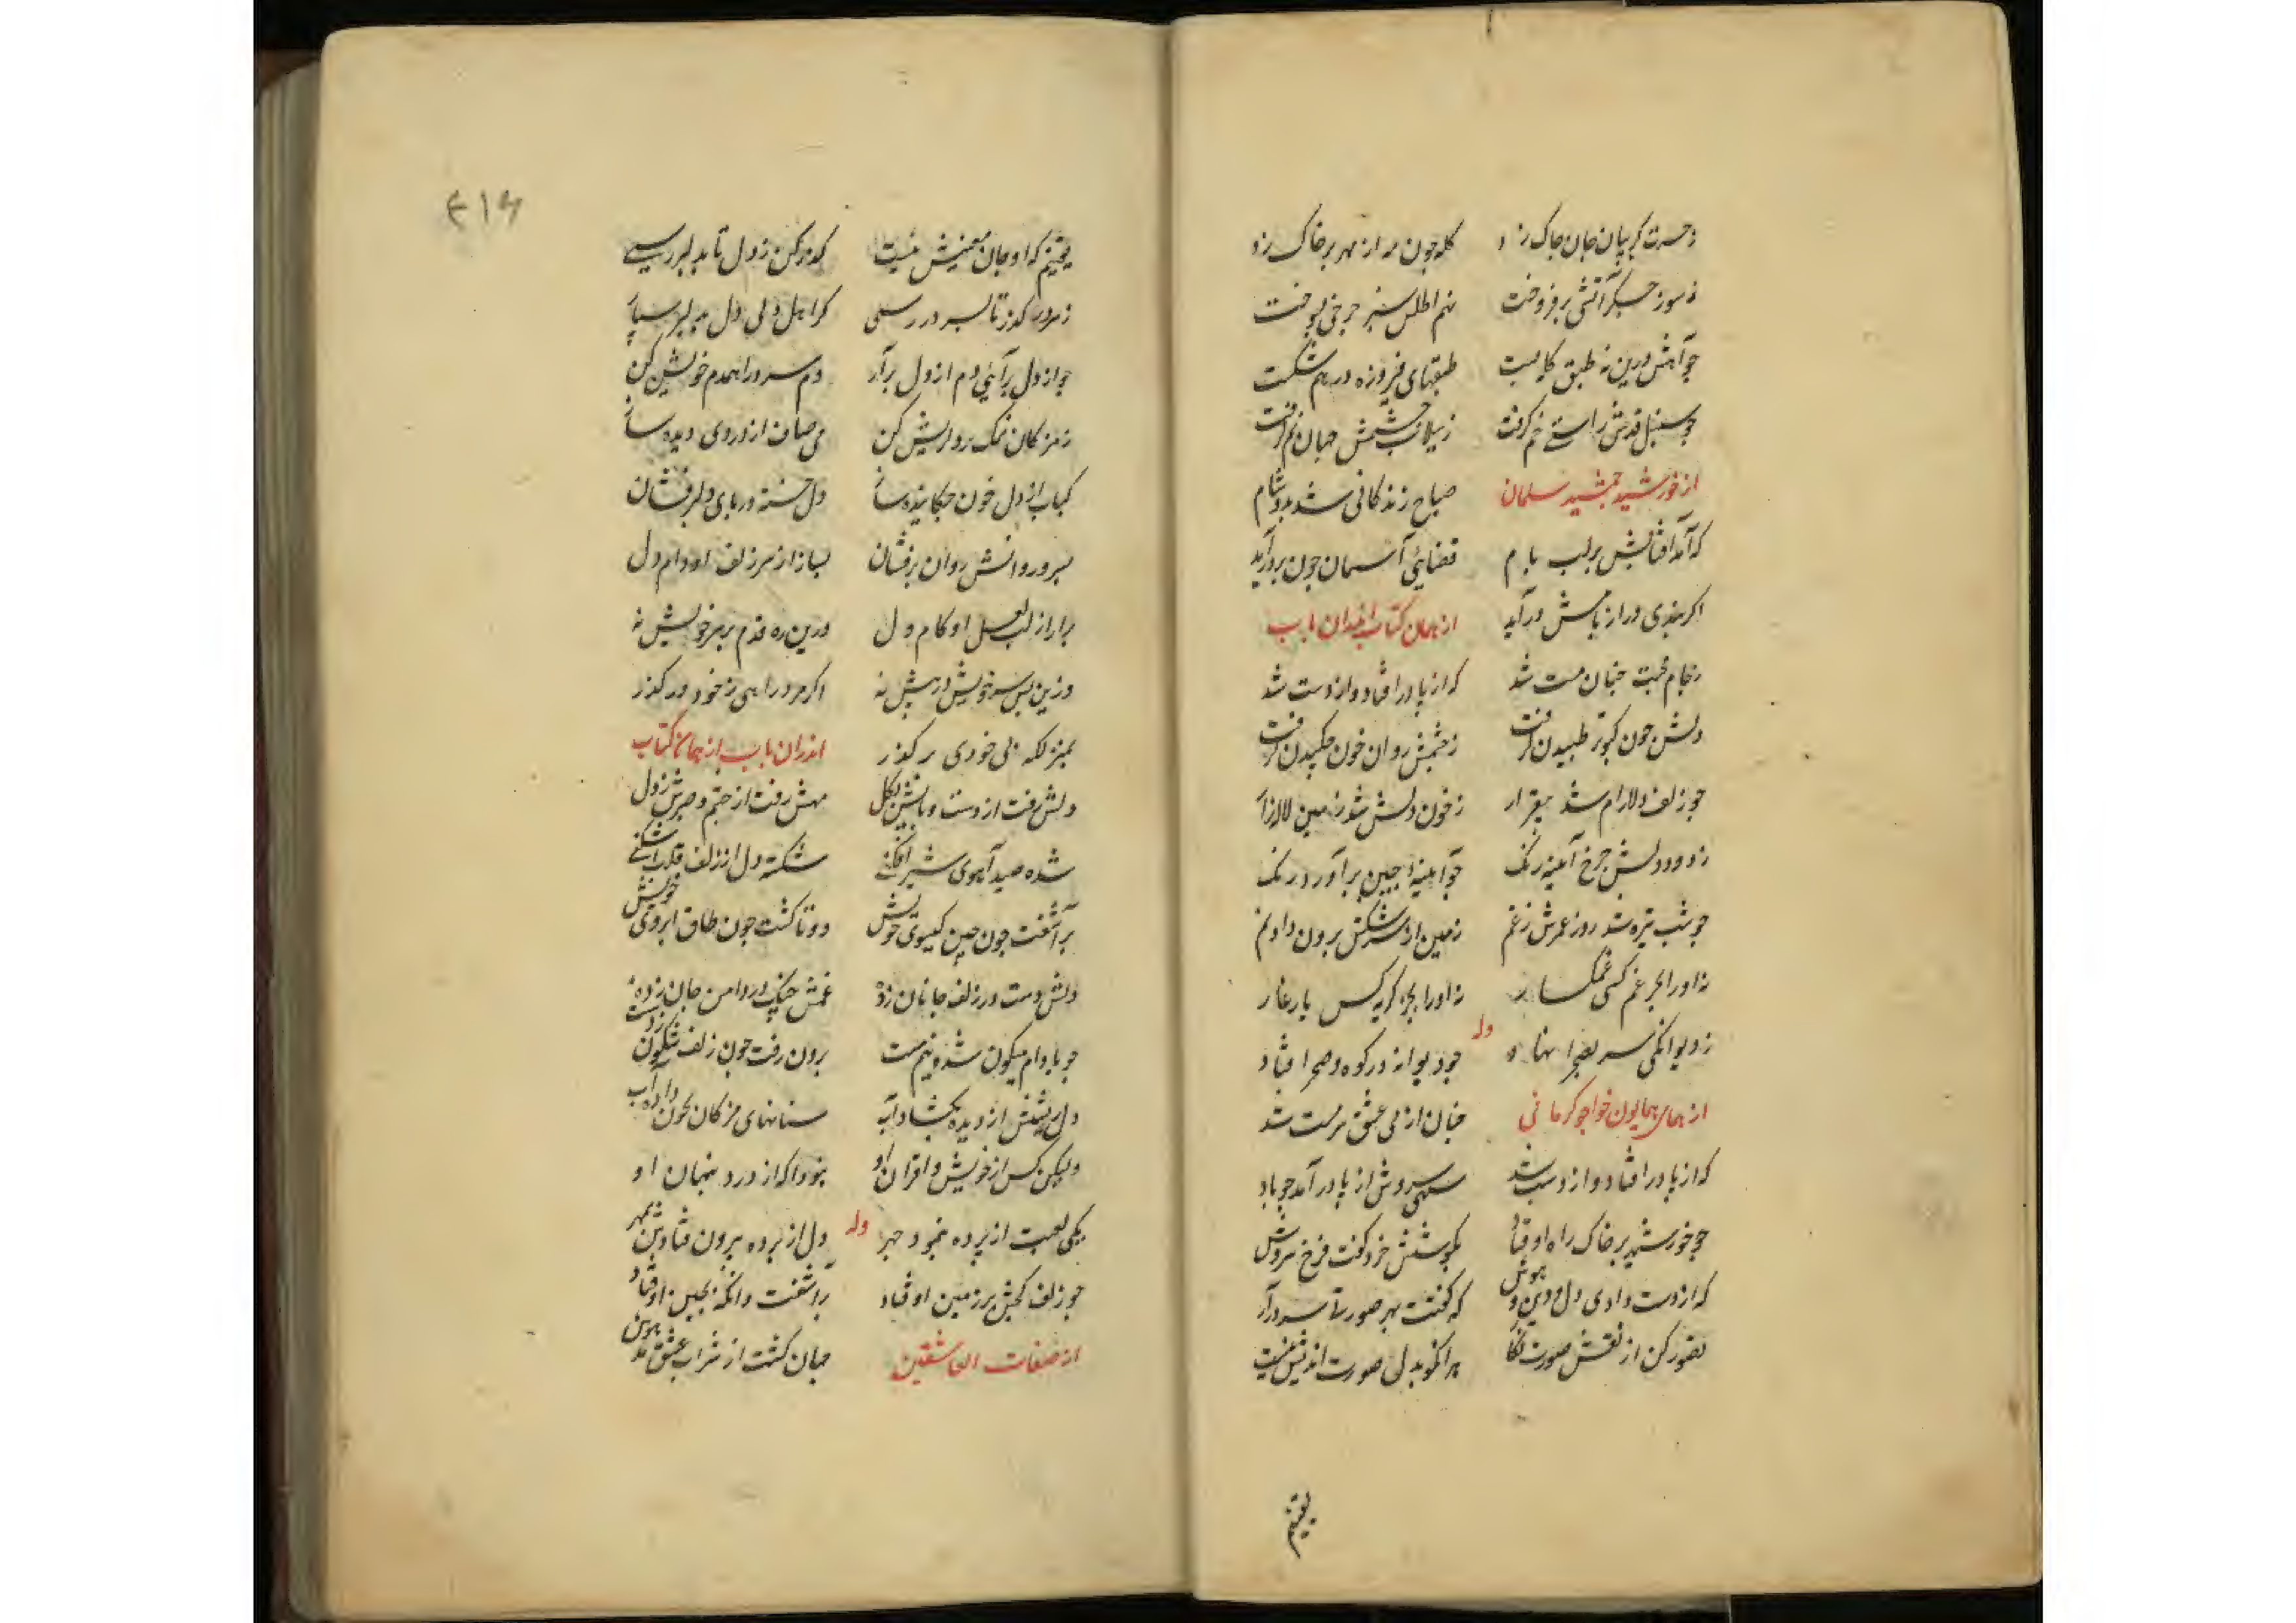 ز حسرت کریبان جان جاک زد کله جون مه از مهر بر خاک زد
ز سوز جکر آتشی بر فروخت نهم اطلس سبز جرخی بسوخت
جو آهش درین نه طبق کله بست طبقهای فیروزه در هم شکست
جو سنبل قدش راستی خم کرفت ز سیلاب چشمش جهان نم کرفت
از خورشید جمشید سلمان صباح زندکانی شد بدو شام
که آمد افتابش بر لب بام قضایی آسمان جون بر در آید
اکر بندی در از بامش در آید از همان کتاب اندران باب
ز جام محبت جنان مست شد که از پا در افتاد و از دست شد
دلش جون کبوتر طبیدن کرفت ز چشمش روان خون چکیدن کرفت
جو زلف دلارام شد بیقرار ز خون دلش شد زمین لاله زار
ز دود دلش جرخ آینه رنک جو آینه چین بر آورد زنک
جو شب تیره شد روز عمرش ز غم زمین از سرشکش برون داد نم
نه او را بجز غم کسی غمکسار نه او را بجز کریه کس یار غار
ز دیوانکی سر بصحرا نهاد وله جو دیوانه در کوه و صحرا فتاد
از همای همایون خواجو کرمانی جنان از می عشق سرمست شد
که از پا در افتاد و از دست شد سهی سروش از پا در آمد جو باد
جو خورشید بر خاک راه اوفتاد بکوشش خرد کفت فرخ سروش
که از دست دادی دل و دین و هوش که کفتت بهر صورتی سر در آر
تصور کن از نقش صورت نکار هر انکو بدل صورت اندیش نیست
یقینم
۴۱۶
یقینم که او جان معنیش نیست کذر کن ز دل تا بدلبر رسی
ز سر در کذر تا بسرور رسی کر اهل دلی دل بدلبر سپار
جو از دل برآیی دم از دل برآر دم سرد را همدم خویش کن
ز مژکان نمک بر دل ریش کن می صاف از دردی دیده ساز
کباب از دل خون چکاینده ساز دل خسته در پای دلبر فشان
بسرو روانش روان بر فشان بساز از سر زلف او دام دل
برار از لب لعل او کام دل درین ره قدم بر سر خویش نه
وزین پس سر خویش در پیش نه اکر مرد راهی ز خود در کذر
بمنزلکه بی خودی بر کذر اندران باب از همان کتاب
دلش رفت از دست و پایش بکل مهش رفت از چشم و صبرش ز دل
شده صید آهوی شیر افکنی شکسته دل از زلف قلب اشکنی
بر آشفت جون جین کیسوی خویش دوتا کشت جون طاق ابروی خویش
دلش دست در زلف جانان زده غمش چنک در دامن جان زده
جو بادام میکون شد و نیم مست برون رفت جون زلف شکون ز دست
دل ریشش از دیده بکشاد آب سنانهای مژکان بخون داده آب
ولیکن کس از خویش و اقران او نبود اکه از درد پنهان او
یکی لعبت از پرده بنمود چهر وله دل از پرده بیرون فتادش بمهر
جو زلف کجش بر زمین اوفتاد بر آشفت وانکه بچین اوفتاد
از صفات العاشقین جنان کشت از شراب عشق مدهوش